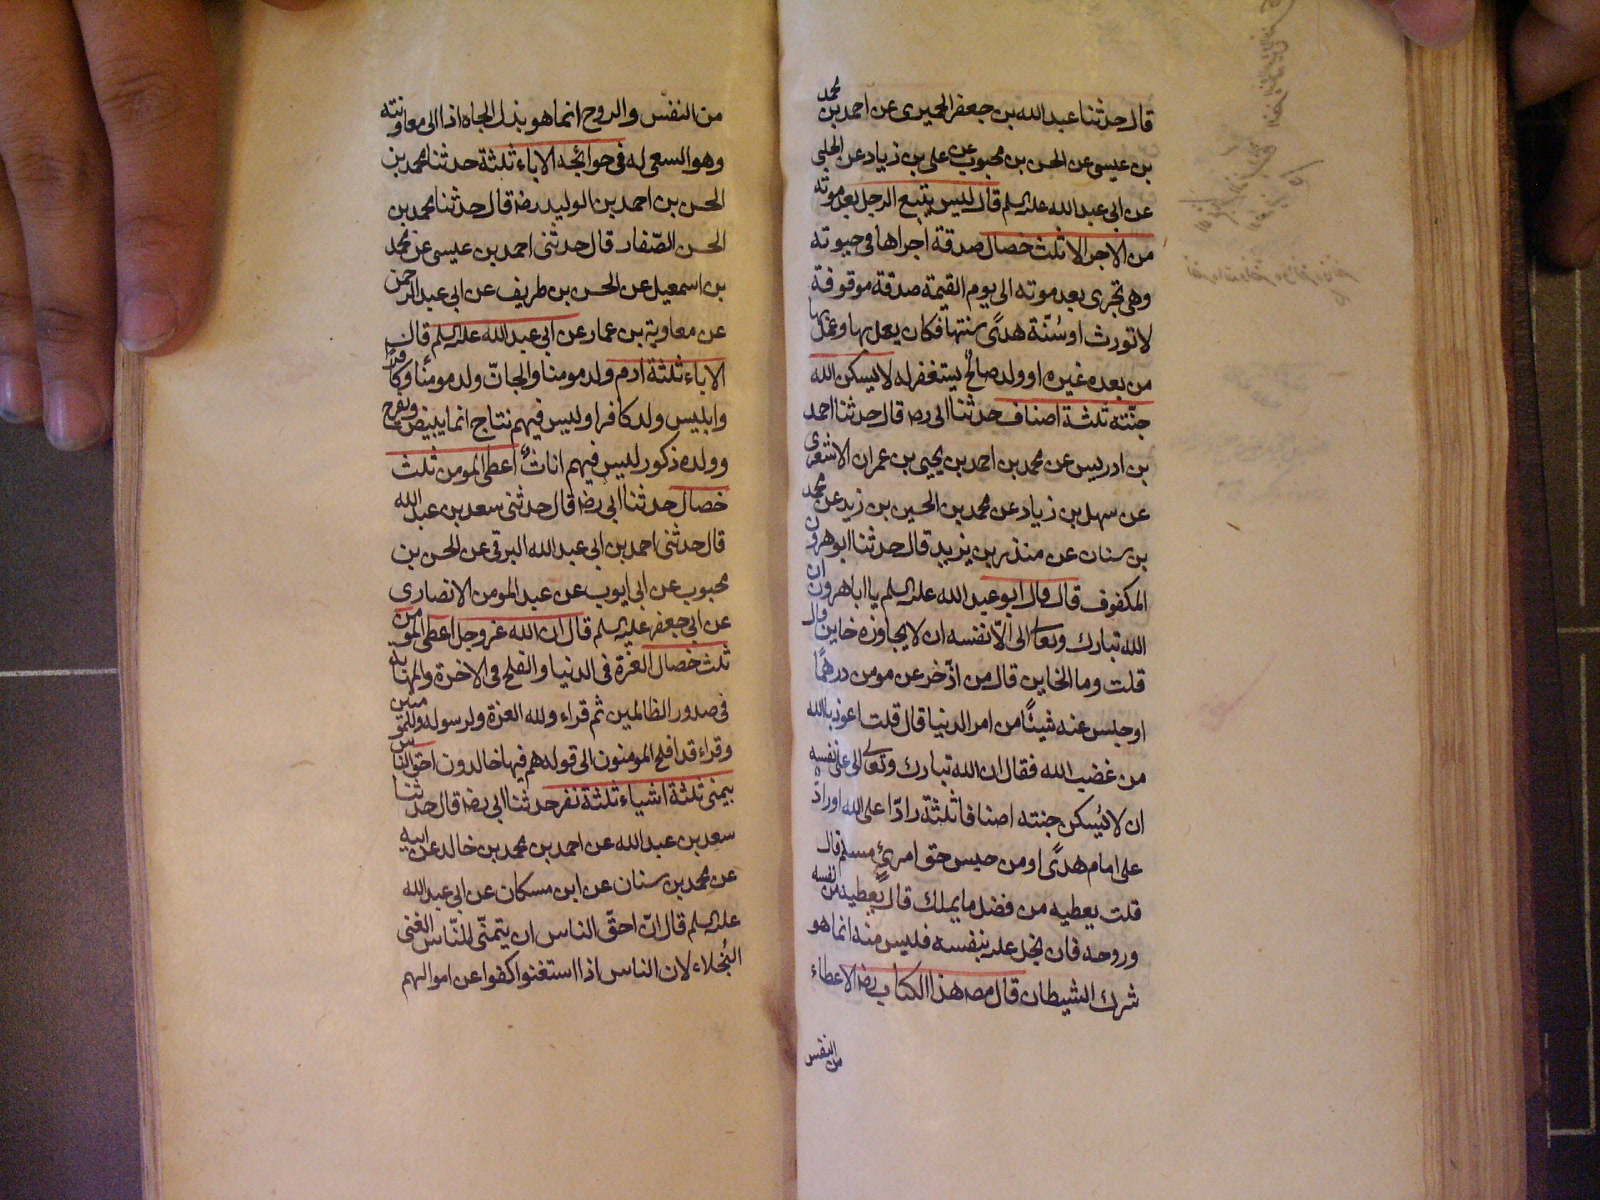 قال حدثنا عبد الله بن جعفر الحميرى عن احمد بن محمد
بن عيسى عن الحسن بن محبوب عن على بن زياد عن الحلبى
عن ابى عبد الله علیه السلم قال ليس يتبع الرجل بعد موته
من الاجر الا ثلث خصال صدقة اجراها فى حيوته
وهى تجرى بعد موته الى يوم القيمة صدقة موقوفة
لا تورث او سُنّة هدًى سنتها فكان يعمل بها وعمل بها
من بعده غيره او ولد صالح يستغفر له لا يسكن الله
جنّته ثلثة اصناف حدثنا ابى رضه قال حدثنا احمد
بن ادريس عن محمد بن احمد بن يحيى بن عمران الاشعرى
عن سهل بن زياد عن محمد بن الحسين بن زيد عن محمد
بن سنان عن منذر بن يزيد قال حدثنا ابو هرون
المكفوف قال قال ابو عبد الله علیه السلم يا ابا هرون ان
الله تبارك وتعالى الّا نفسه ان لا يجاوزه خاين قال
قلت وما الخاين قال من ادّخر عن مومن درهمًا
او حبس عنه شيئًا من امر الدنيا قال قلت اعوذ بالله
من غضب الله فقال ان الله تبارك وتعالى الى على نفسه
ان لا يُسكن جنته اصنافا ثلثة رادّا على الله او رادّ
على امام هدًى او من حبس حق امرئٍ مسلم قال
قلت يعطيه من فضل ما يملك قال يعطيه من نفسه
وروحه فان بخل عليه بنفسه فليس منه انما هو
شرك الشيطان قال مصه هذا الكتاب رضه الاعطاء
من النفس
من النفس والروح انما هو بذل الجاه اذا الى معاونته
وهو السعى له فى حوائجه الاباء ثلثة حدثنا محمد بن
الحسن بن احمد بن الوليد رضه قال حدثنا محمد بن
الحسن الصّفار قال حدثنى احمد بن عيسى عن محمد
بن اسمعيل عن الحسن بن طريف عن ابى عبد الرحمن
عن معاوية بن عمار عن ابى عبد الله علیه السلم قال
الاباء ثلثة ادم ولد مومنا والجانّ ولد مومنًا وكافرًا
وابليس ولد كافرا وليس فيهم نتاج انما يبيض ويفرخ
وولده ذكور ليس فيهم اناثٌ اعطى المومن ثلث
خصال حدثنا ابى رضه قال حدثنى سعد بن عبد الله
قال حدثنى احمد بن ابى عبد الله البرقى عن الحسن بن
محبوب عن ابى ايوب عن عبد المومن الانصارى
عن ابى جعفر علیه السلم قال ان الله عز وجل اعطى المومن
ثلث خصال العزة فى الدنيا والفلح فى الاخرة والمهابة
فى صدور الظالمين ثم قراء ولله العزة ولرسوله وللمومنين
وقراء قد افلح المومنون الى قوله هم فيها خالدون احق الناس
بتمنى ثلثة اشياء ثلثة نفر حدثنا ابى رضه قال حدثنا
سعد بن عبد الله عن احمد بن محمد بن خالد عن ابيه
عن محمد بن سنان عن ابن مسكان عن ابى عبد الله
علیه السلم قال انّ احقّ الناس ان يتمنّى للنّاس الغنى
البُخلاء لان الناس اذا استغنوا كفوا عن اموالهم